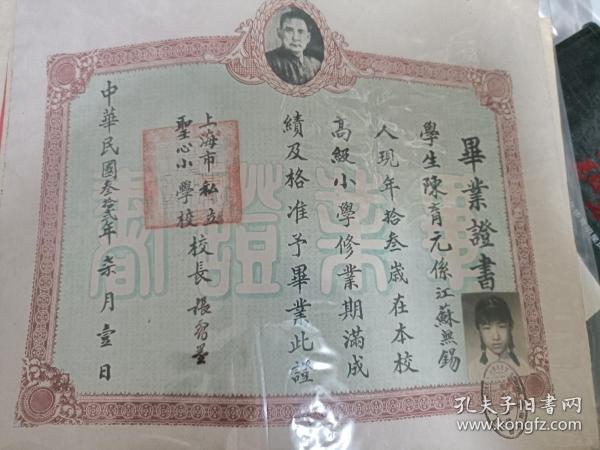 畢業證書
學生陳育元係江蘇無錫
人現年拾叁歲在本校
高級小學修業期滿成
績及格准予畢業此證
上海市私立
聖心小學校
校長
中華民國叁拾貳年柒月壹日
畢業證書
孔夫子旧书网
www.kongfz.com